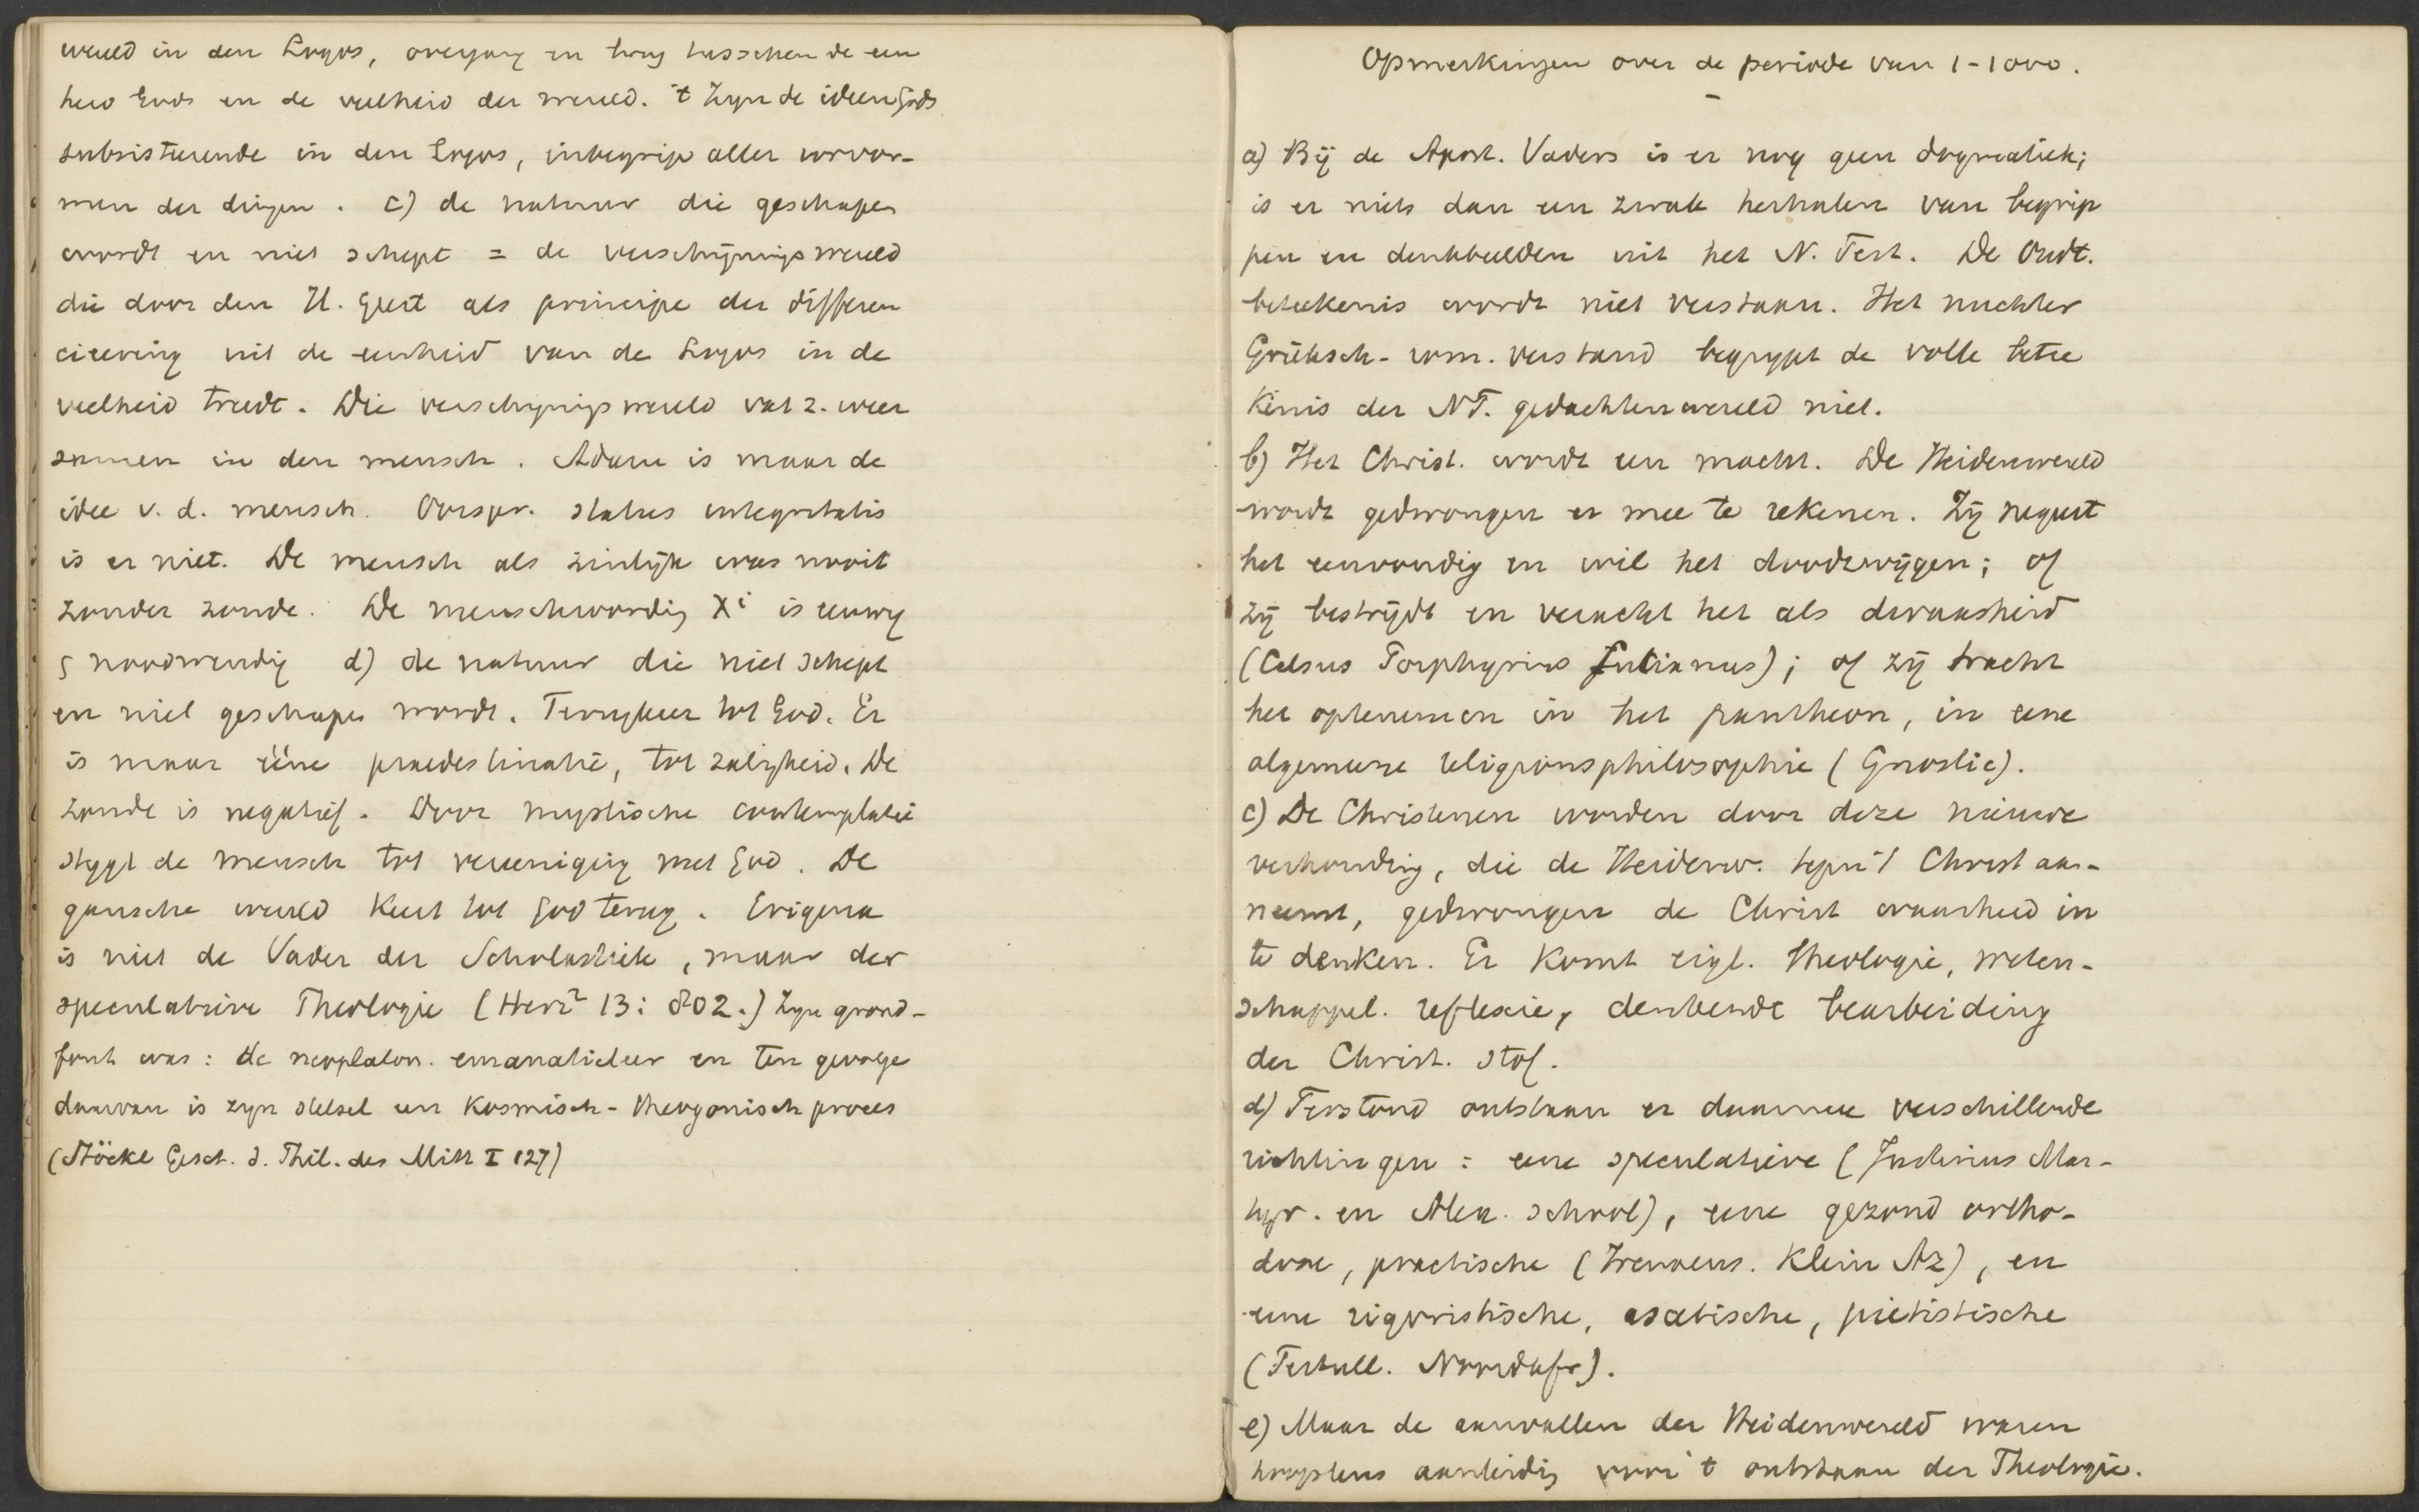 wereld in den Logos, overgang en brug tusschen de een
heid Gods en de veelheid der wereld. 't Zyn de ideen Gods
subsisteerende in den Logos, inbegrip aller vorvor-
men der dingen. c) de natuur die geschapen
wordt en niet schept = de verschijningswereld
die door den H. Geest als principe der differen
cieering uit de eenheid van de Logos in de
veelheid treedt. Die verschyningswereld vat z. weer
samen in den mensch. Adam is maar de
idee v. d. mensch. Oorspr. status integritatis
is er niet. De mensch als zinlijk was nooit
zonder zonde. De menschwording Xi is eeuwig
noodwendig d) de natuur die niet schept
en niet geschapen wordt. Terugkeer tot God. Er
is maar ééne praedestinatie, tot zaligheid. De
zonde is negatief. Door mystische contemplatie
stygt de mensch tot vereeniging met God. De
gansche wereld keert tot God terug. Erigena
is niet de Vader der Scholastiek, maar der
speculatieve Theologie (Herz² 13: 802.) Zyn grond-
fout was: de neoplaton. emanatieleer en ten gevolge
daarvan is zyn stelsel een kosmisch-theogonisch proces
(Stöckl Gesch. d. Phil. des Mitt I 127)
Opmerkingen over de periode van 1-1000.
a) Bij de Apost. Vaders is er nog geen dogmatiek;
is er niets dan een zwak herhalen van begrip
pen en denkbeelden uit het N. Test. De Oudt.
beteekenis wordt niet verstaan. Het nuchter
Grieksch-rom. verstand begrypt de volle betee
kenis der NT. gedachtenwereld niet.
b) Het Christ. wordt een macht. De Heidenwereld
wordt gedwongen er mee te rekenen. Zij negeert
het eenvoudig en wil het doodzwijgen; of
zij bestrijdt en veracht het als dwaasheid
(Celsus Porphyrius Julianus); of zij tracht
het optenemen in het pantheon, in eene
algemeene religionsphilosophie (Gnostic).
c) De Christenen worden door deze nieuwe
verhouding, die de Heidenw. tegen 't Christ aan-
neemt, gedwongen de Christ waarheid in
te denken. Er komt eigl. Theologie, weten-
schappel. reflexie, denkende bearbeiding
der Christ. stof.
d) Terstond ontstaan er daarmee verschillende
richtingen: eene speculatieve (Justinus Mar-
tyr. en Alex. school), eene gezond ortho-
doxe, practische (Irenaeus. Klein Az), en
eene rigoristische, ascetische, pietistische
(Tertull. Noordafr).
e) Maar de aanvallen der Heidenwereld waren
hoogstens aanleiding voor 't ontstaan der Theologie.